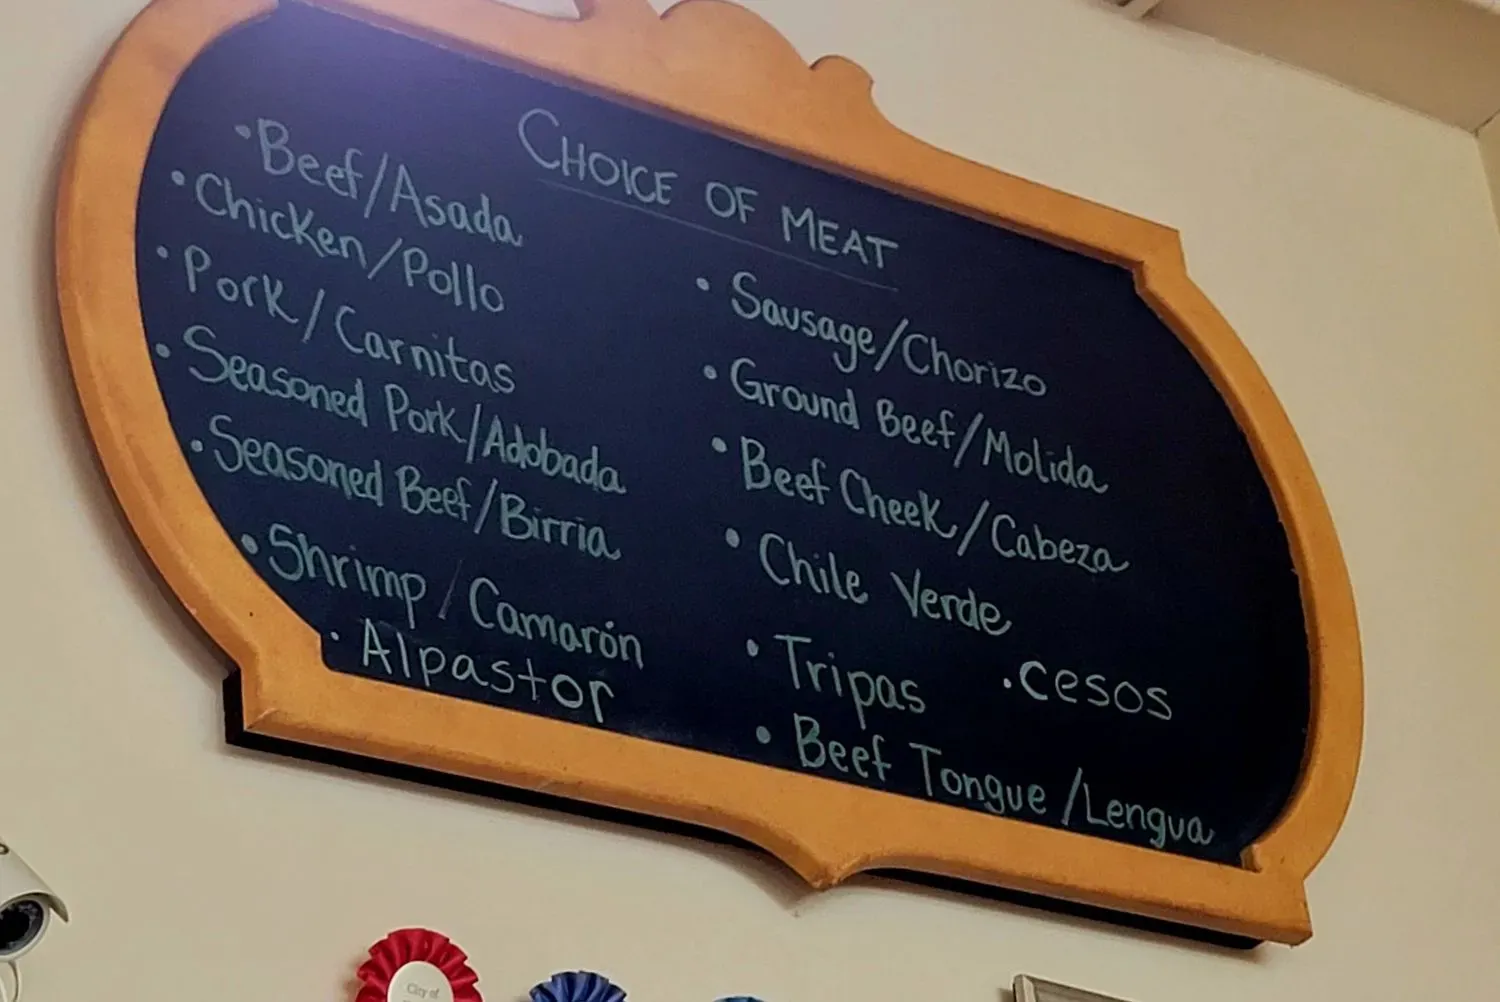 CHOICE OF MEAT
• Beef/Asada
• Chicken/Pollo
• Pork/Carnitas
• Seasoned Pork/Adobada
• Seasoned Beef/Birria
• Shrimp/Camarón
• Alpastor
• Sausage/Chorizo
• Ground Beef/Molida
• Beef Cheek/Cabeza
• Chile Verde
• Tripas
• cesos
• Beef Tongue/Lengua
City of